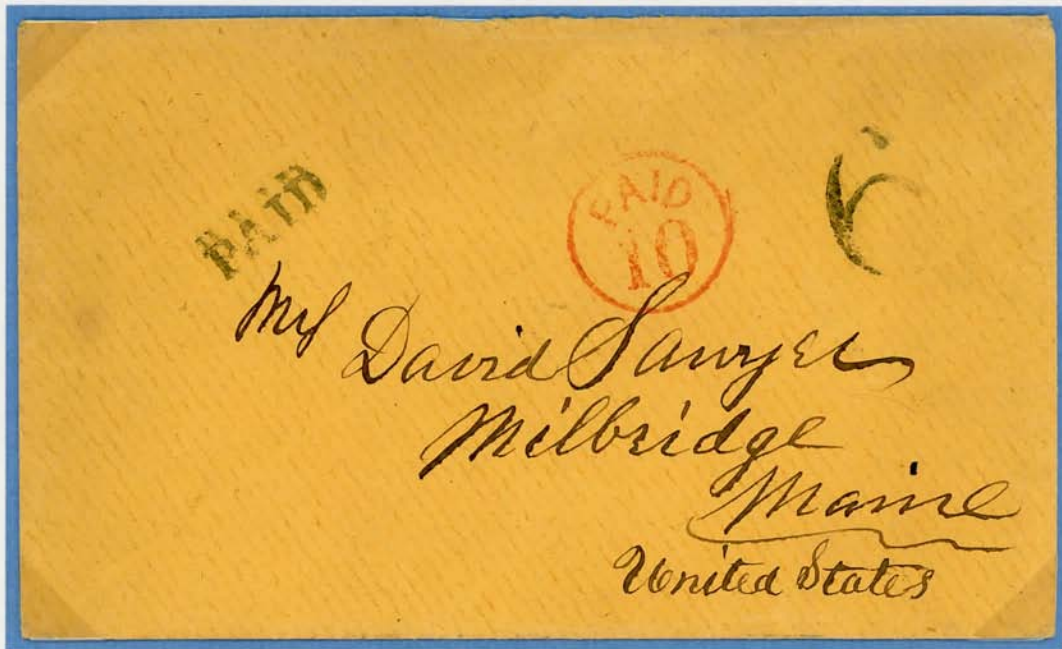 PAID
PAID
10
6
Mrs David Sawyer
Milbridge
Maine
United States